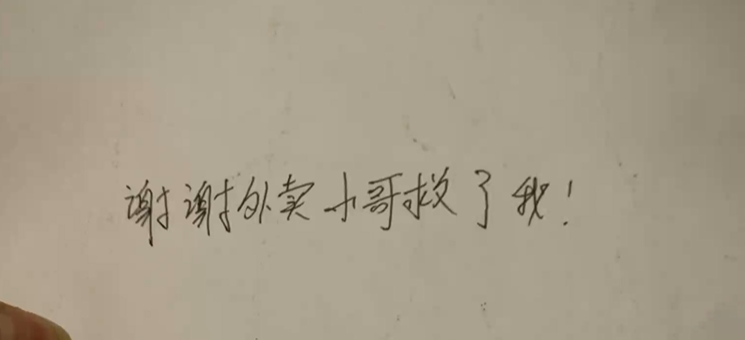 谢谢外卖小哥救了我！